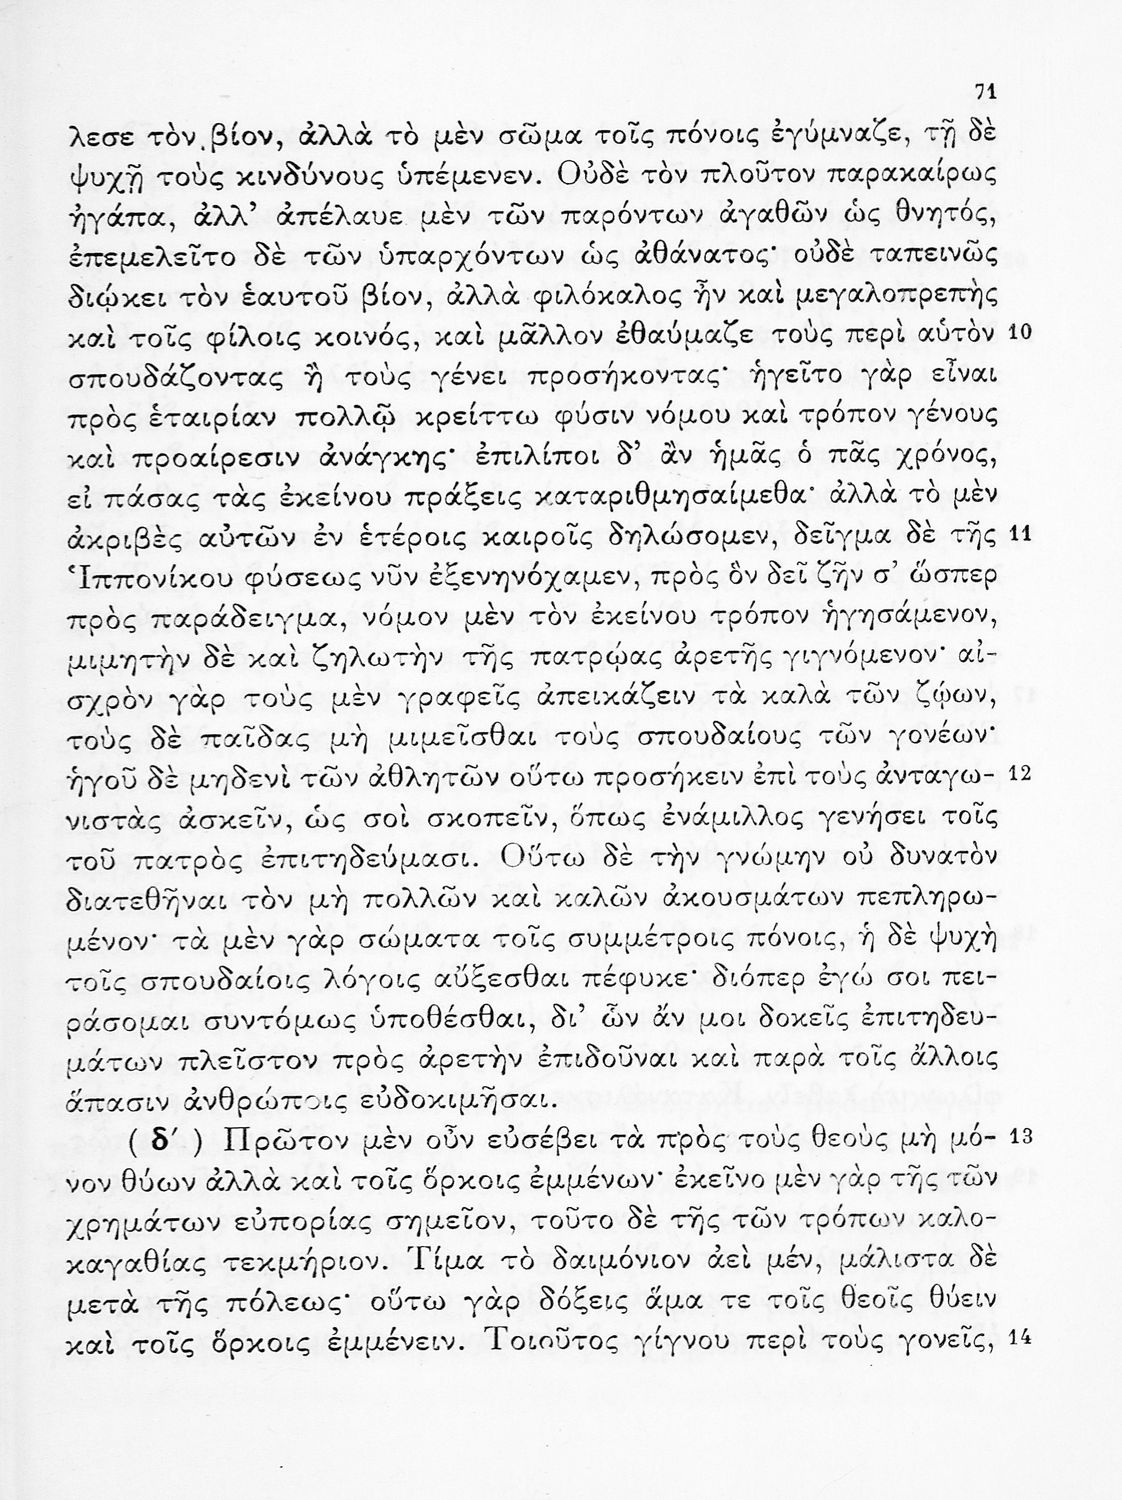 71
λεσε τὸν βίον, ἀλλὰ τὸ μὲν σῶμα τοῖς πόνοις ἐγύμναζε, τῇ δὲ
ψυχῇ τοὺς κινδύνους ὑπέμενεν. Οὐδὲ τὸν πλοῦτον παρακαίρως
ἠγάπα, ἀλλ’ ἀπέλαυε μὲν τῶν παρόντων ἀγαθῶν ὡς θνητός,
ἐπεμελεῖτο δὲ τῶν ὑπαρχόντων ὡς ἀθάνατος· οὐδὲ ταπεινῶς
διῴκει τὸν ἑαυτοῦ βίον, ἀλλὰ φιλόκαλος ἦν καὶ μεγαλοπρεπὴς
καὶ τοῖς φίλοις κοινός, καὶ μᾶλλον ἐθαύμαζε τοὺς περὶ αὑτὸν 10
σπουδάζοντας ἢ τοὺς γένει προσήκοντας· ἡγεῖτο γὰρ εἶναι
πρὸς ἑταιρίαν πολλῷ κρείττω φύσιν νόμου καὶ τρόπον γένους
καὶ προαίρεσιν ἀνάγκης· ἐπιλίποι δ’ ἂν ἡμᾶς ὁ πᾶς χρόνος,
εἰ πάσας τὰς ἐκείνου πράξεις καταριθμησαίμεθα· ἀλλὰ τὸ μὲν
ἀκριβὲς αὐτῶν ἐν ἑτέροις καιροῖς δηλώσομεν, δεῖγμα δὲ τῆς 11
Ἱππονίκου φύσεως νῦν ἐξενηνόχαμεν, πρὸς ὃν δεῖ ζῆν σ’ ὥσπερ
πρὸς παράδειγμα, νόμον μὲν τὸν ἐκείνου τρόπον ἡγησάμενον,
μιμητὴν δὲ καὶ ζηλωτὴν τῆς πατρῴας ἀρετῆς γιγνόμενον· αἰ-
σχρὸν γὰρ τοὺς μὲν γραφεῖς ἀπεικάζειν τὰ καλὰ τῶν ζῴων,
τοὺς δὲ παῖδας μὴ μιμεῖσθαι τοὺς σπουδαίους τῶν γονέων·
ἡγοῦ δὲ μηδενὶ τῶν ἀθλητῶν οὕτω προσήκειν ἐπὶ τοὺς ἀνταγω- 12
νιστὰς ἀσκεῖν, ὡς σοὶ σκοπεῖν, ὅπως ἐνάμιλλος γενήσει τοῖς
τοῦ πατρὸς ἐπιτηδεύμασι. Οὕτω δὲ τὴν γνώμην οὐ δυνατὸν
διατεθῆναι τὸν μὴ πολλῶν καὶ καλῶν ἀκουσμάτων πεπληρω-
μένον· τὰ μὲν γὰρ σώματα τοῖς συμμέτροις πόνοις, ἡ δὲ ψυχὴ
τοῖς σπουδαίοις λόγοις αὔξεσθαι πέφυκε· διόπερ ἐγώ σοι πει-
ράσομαι συντόμως ὑποθέσθαι, δι’ ὧν ἄν μοι δοκεῖς ἐπιτηδευ-
μάτων πλεῖστον πρὸς ἀρετὴν ἐπιδοῦναι καὶ παρὰ τοῖς ἄλλοις
ἅπασιν ἀνθρώποις εὐδοκιμῆσαι.
( δ′ ) Πρῶτον μὲν οὖν εὐσέβει τὰ πρὸς τοὺς θεοὺς μὴ μό- 13
νον θύων ἀλλὰ καὶ τοῖς ὅρκοις ἐμμένων· ἐκεῖνο μὲν γὰρ τῆς τῶν
χρημάτων εὐπορίας σημεῖον, τοῦτο δὲ τῆς τῶν τρόπων καλο-
καγαθίας τεκμήριον. Τίμα τὸ δαιμόνιον ἀεὶ μέν, μάλιστα δὲ
μετὰ τῆς πόλεως· οὕτω γὰρ δόξεις ἅμα τε τοῖς θεοῖς θύειν
καὶ τοῖς ὅρκοις ἐμμένειν. Τοιοῦτος γίγνου περὶ τοὺς γονεῖς, 14